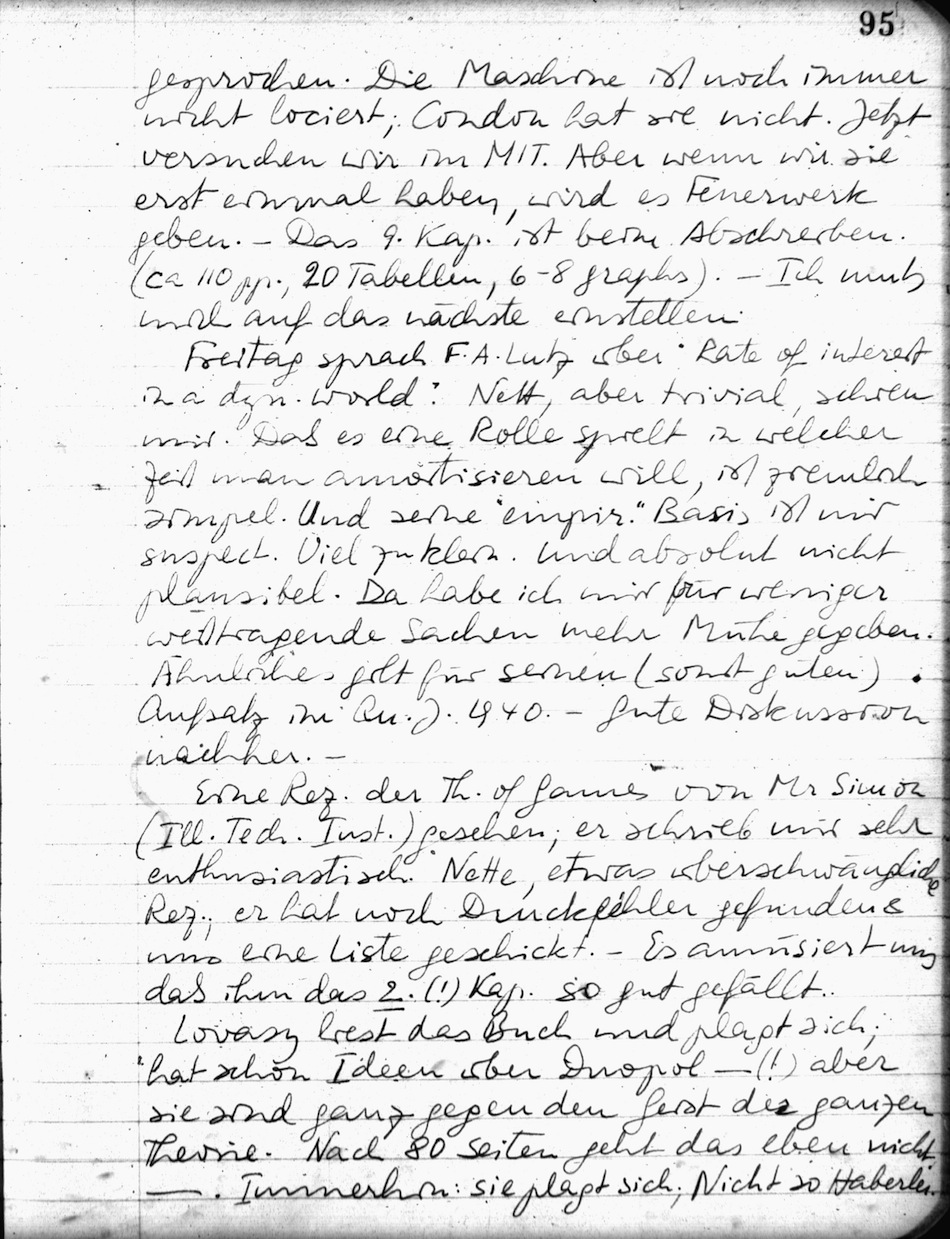 95
gesprochen. Die Maschine ist noch immer
nicht lociert; Condon hat sie nicht. Jetzt
versuchen wir im MIT. Aber wenn wir sie
erst einmal haben, wird es Feuerwerk
geben. – Das 9. Kap. ist beim Abschreiben.
(ca 110 pp., 20 Tabellen, 6-8 graphs). – Ich muß
mich auf das nächste einstellen.
Freitag sprach F.A. Lutz über "Rate of interest
in a dyn. world". Nett, aber trivial, schien
mir. Daß es eine Rolle spielt in welcher
Zeit man amortisieren will, ist ziemlich
simpel. Und seine "empir." Basis ist mir
suspect. Viel zu klein. Und absolut nicht
plausibel. Da habe ich mir für weniger
weittragende Sachen mehr Mühe gegeben.
Ähnliches gilt für seinen (sonst guten)
Aufsatz im Qu. J. 1940. – Gute Diskussion
nachher. –
Eine Rez. der Th. of Games von Mr Simon
(Ill. Tech. Inst.) gesehen; er schrieb mir sehr
enthusiastisch. Nette, etwas überschwängliche
Rez.; er hat noch Druckfehler gefunden &
uns eine Liste geschickt. – Es amüsiert uns
daß ihm das 2. (!) Kap. so gut gefällt..
Lovasy liest das Buch und plagt sich;
hat schon Ideen über Duopol – (!) aber
sie sind ganz gegen den Geist der ganzen
Theorie. Nach 80 Seiten geht das eben nicht
—. Immerhin: sie plagt sich; Nicht so Haberler.